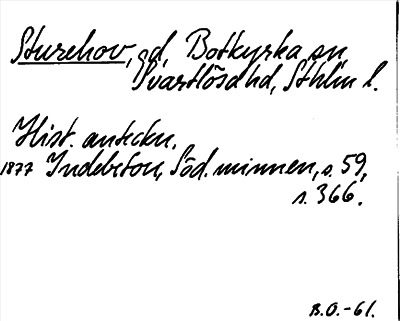 Sturehov, gd, Botkyrka sn,
Svartlösa hd, Sthlm l.
Hist. anteckn.
1877 Indebetou, Söd. minnen, s. 59,
s. 366.
B.O.-61.